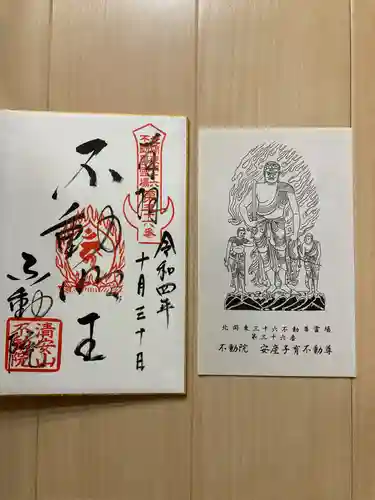 奉拝
令和四年
十月三十日
不動明王
不動院
清安山
不動院
北関東三十六不動尊霊場
第三十六番
不動院 安産子育不動尊